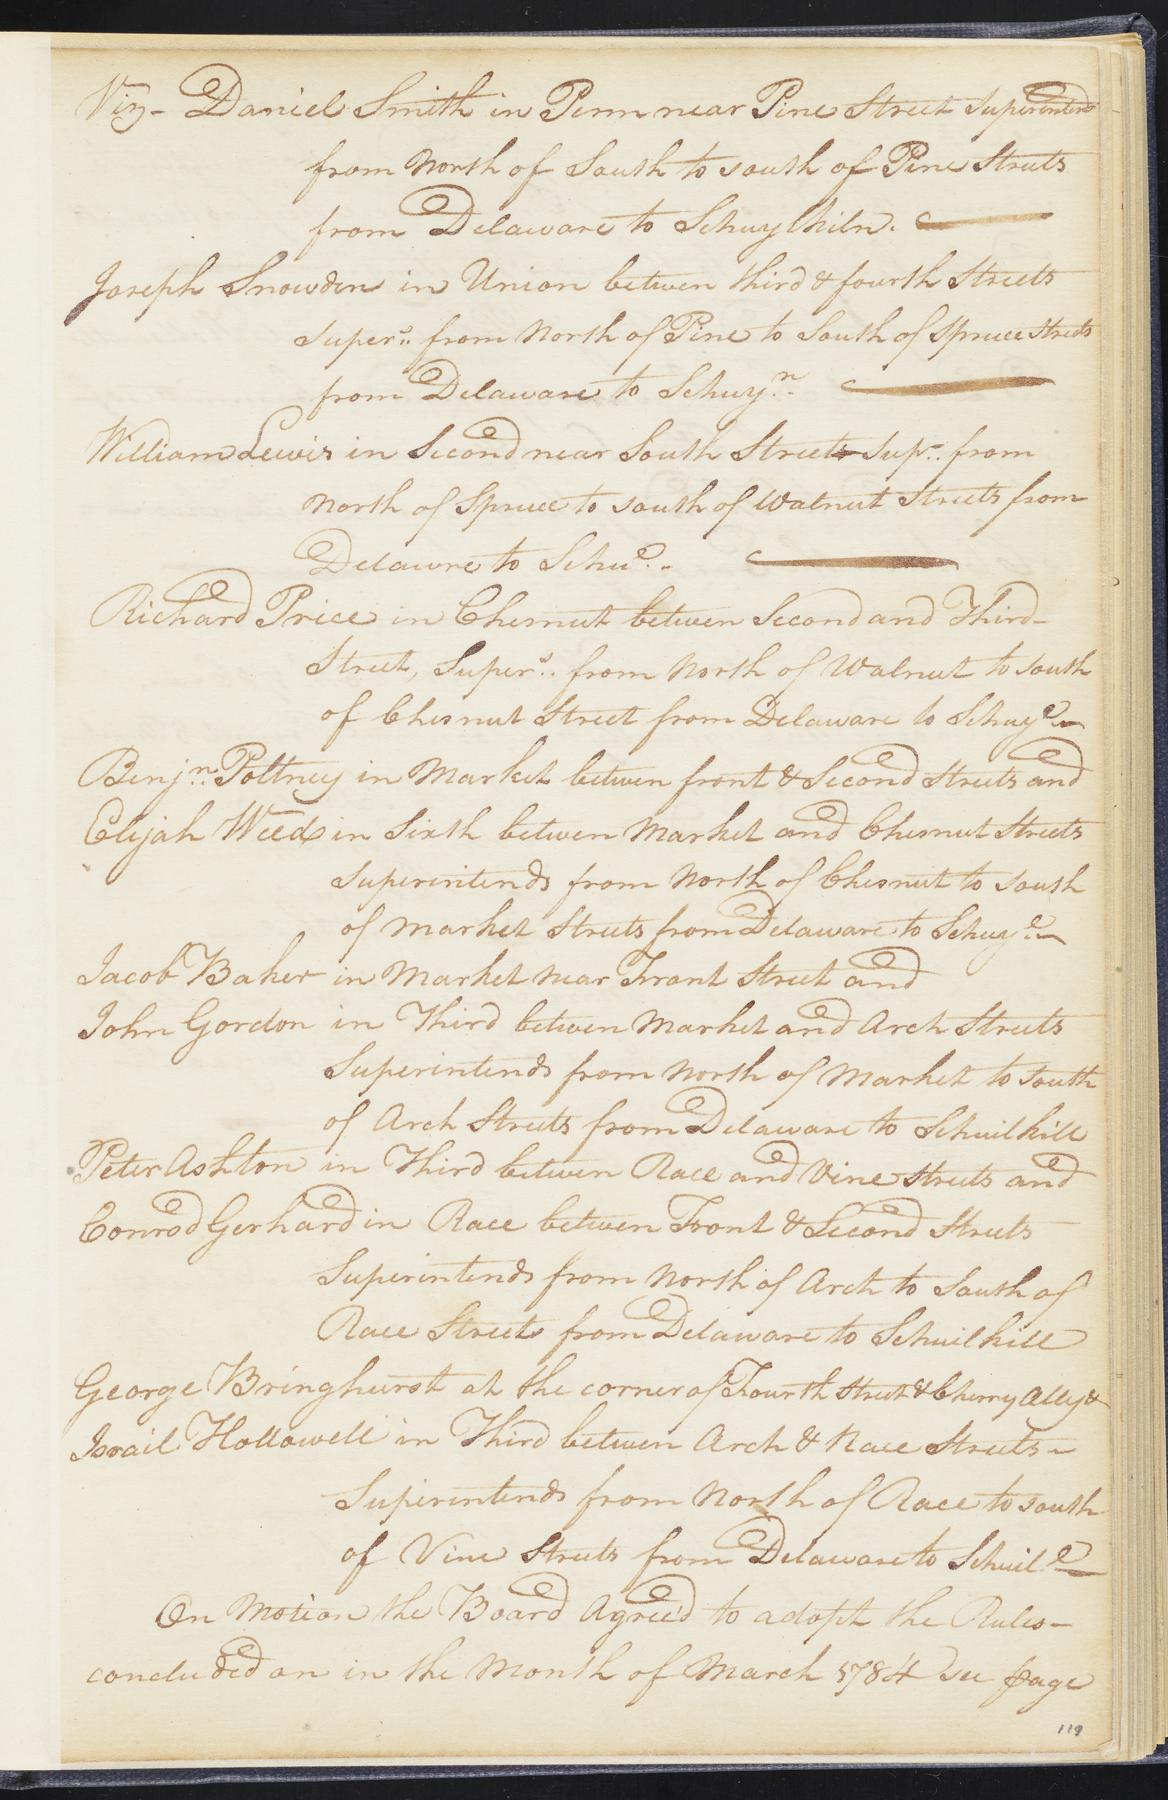 Viz- Daniel Smith in Penn near Pine Street Superintends
from North of South to south of Pine Streets
from Delaware to Schuylkiln.
Joseph Snowden in Union between third & fourth Streets
Super.s from North of Pine to South of Spruce Streets
from Delaware to Schuy.n
William Lewis in Second near South Street Sup.r from
North of Spruce to south of Walnut Streets from
Delawre to Schu.e-
Richard Price in Chesnut between Second and Third-
Street, Super.s from North of Walnut to south
of Chesnut Street from Delaware to Schuy.e
Benj.n Poltney in Market between front & Second Streets and
Elijah Weeds in Sixth between Market and Chesnut Streets
Superintends from North of Chesnut to south
of Market Streets from Delaware to Schuy.e
Jacob Baker in Market near Front Street and
John Gordon in Third between Market and Arch Streets
Superintends from North of Market to South
of Arch Streets from Delaware to Schuilkill
Peter Ashton in Third between Race and Vine Streets and
Conrod Gerhard in Race between Front & Second Streets
Superintends from North of Arch to South of
Race Street from Delaware to Schuilkill
George Bringhurst at the corner of Fourth Street & Cherry Ally &
Israil Hollowell in Third between Arch & Race Streets-
Superintends from North of Race to south
of Vine Streets from Delaware to Schuil.e
On Motion the Board Agree'd to adopt the Rules-
concluded on in the Month of March 1784 see page
119